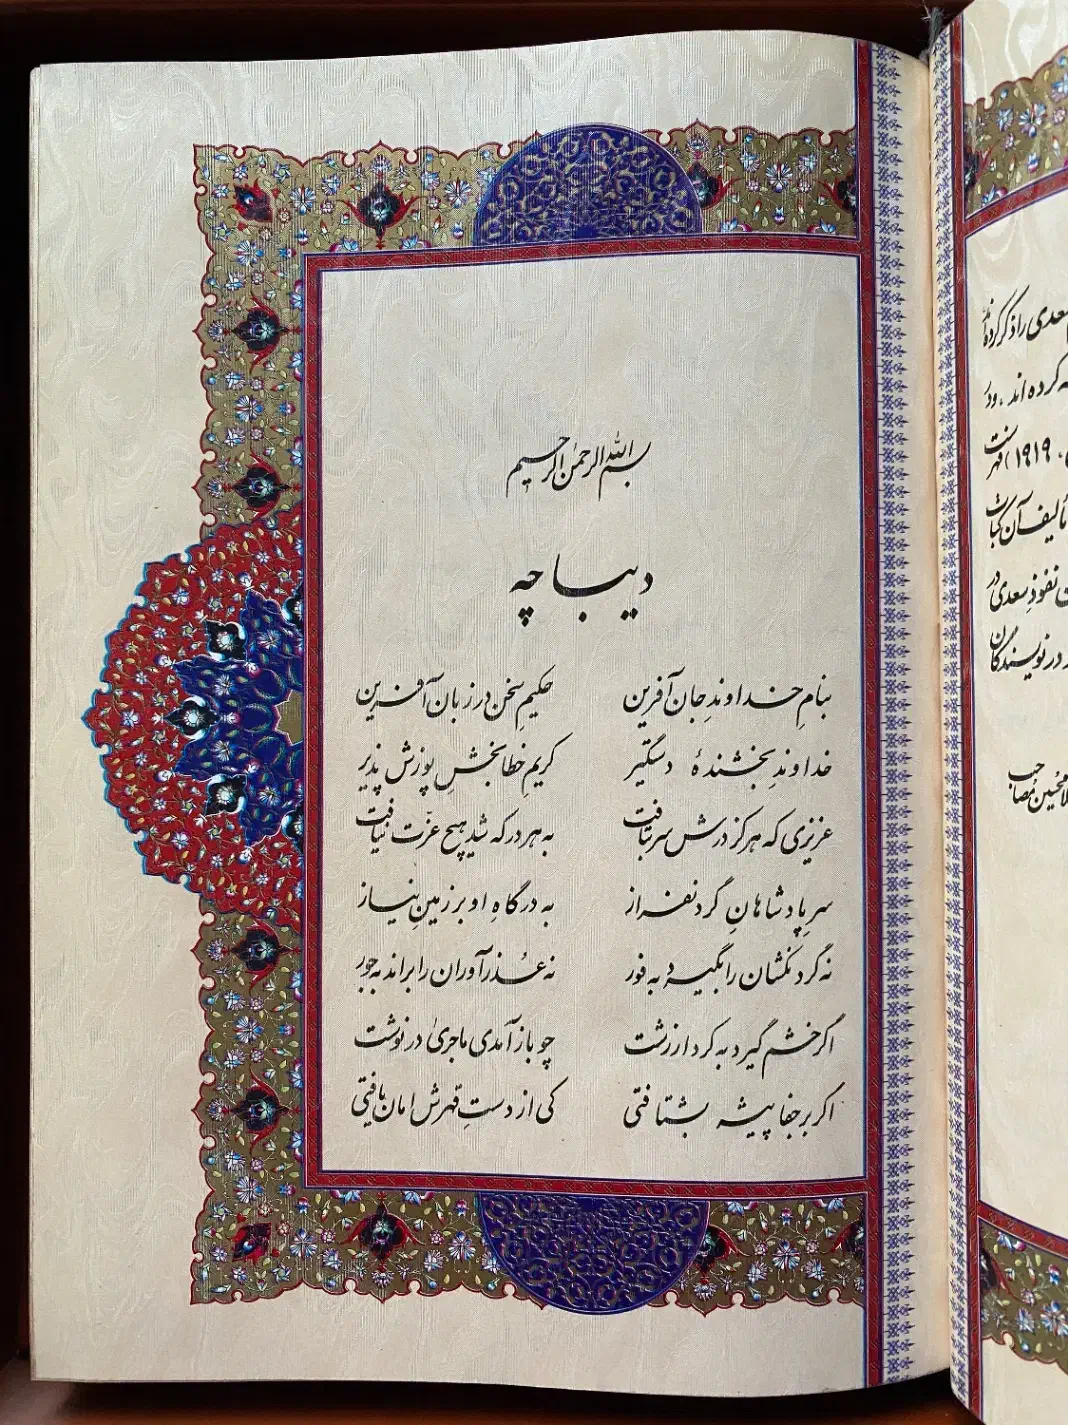 بسم الله الرحمن الرحیم
دیباچه
بنامِ خداوندِ جان آفرین حکیمِ سخن در زبان آفرین
خداوندِ بخشندهٔ دستگیر کریمِ خطا بخشِ پوزش پذیر
عزیزی که هرگز درش سر بتافت به هر در که شد هیچ عزّت نیافت
سرِ پادشاهانِ گردنفراز به درگاهِ او بر زمینِ نیاز
نه گردنکشان را بگیرد به فور نه عُذرآوران را براند به جور
اگر خشم گیرد به کردار زشت چو باز آمدی ماجریٰ در نوشت
اگر بر جفا پیشه بشتافتی کی از دستِ قهرش امان یافتی
سعدی را ذکر کرده‌اند
کرده‌اند، ودر
، ۱۹۱۹) فهرست
تألیف آن کتاب
نفوذِ سعدی در
در نویسندگان